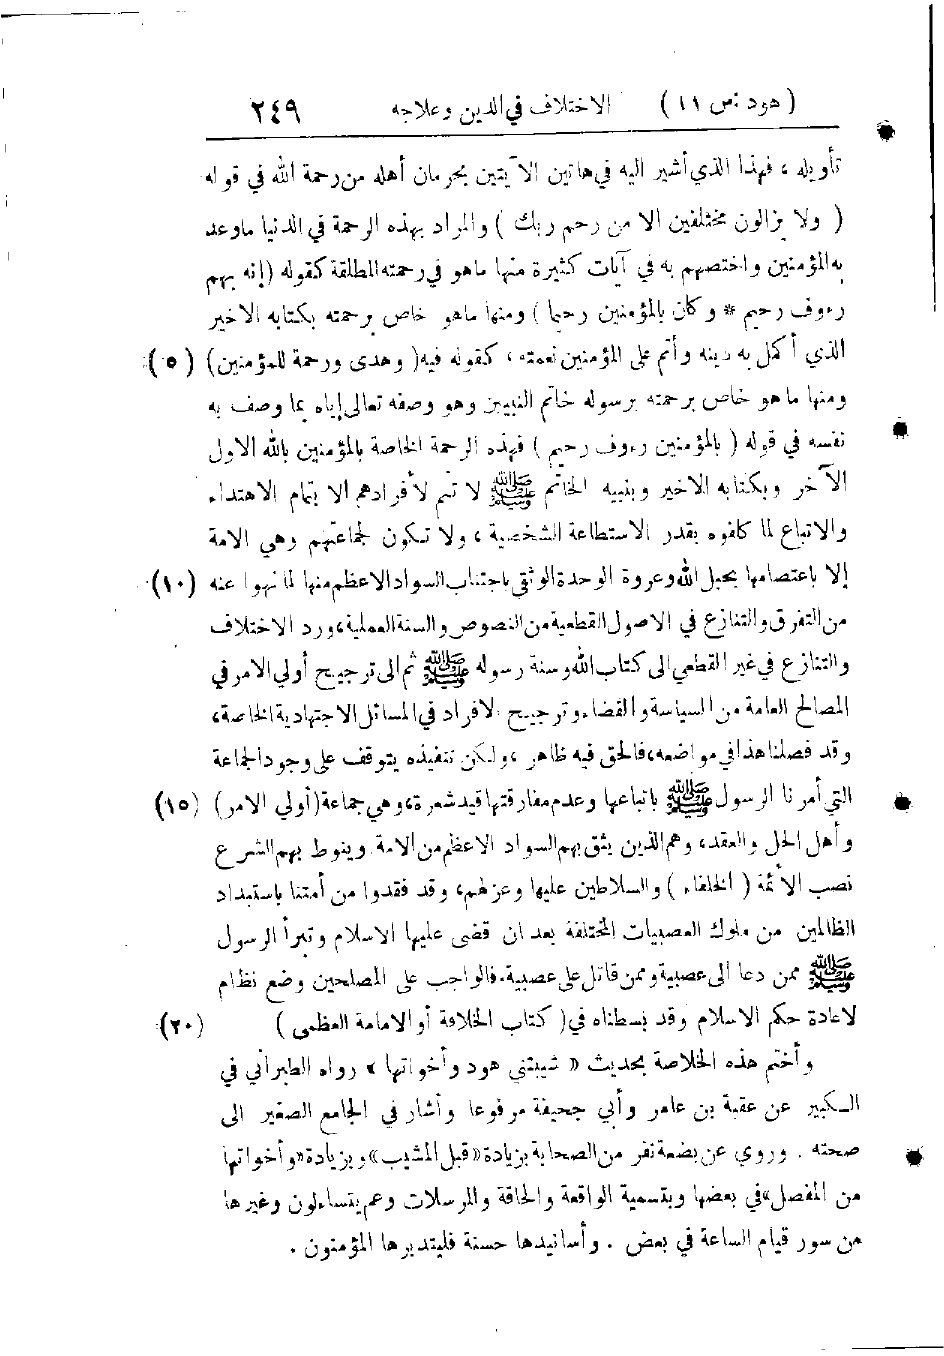 ( هود : س ١١ ) الاختلاف في الدين وعلاجه ٢٤٩
تأويله ، فهذا الذي أشير اليه في هاتين الآيتين بحرمان أهله من رحمة الله في قوله
( ولا يزالون مختلفين الا من رحم ربك ) والمراد بهذه الرحمة في الدنيا ما وعد
به المؤمنين واختصهم به في آيات كثيرة منها ما هو في رحمته المطلقة كقوله (إنه بهم
رءوف رحيم * وكان بالمؤمنين رحيما ) ومنها ما هو خاص برحمته بكتابه الاخير
الذي أكمل به دينه وأتم على المؤمنين نعمته ، كقوله فيه ( وهدى ورحمة للمؤمنين) (٥)
ومنها ما هو خاص برحمته برسوله خاتم النبيين وهو وصفه تعالى إياه بما وصف به
نفسه في قوله ( بالمؤمنين رءوف رحيم ) فهذه الرحمة الخاصة بالمؤمنين بالله الاول
الآخر وبكتابه الاخير وبنبيه الخاتم ﷺ لا تتم لأفرادهم الا بتمام الاهتداء
والاتباع لما كلفوه بقدر الاستطاعة الشخصية ، ولا تكون لجماعتهم وهي الامة
إلا باعتصامها بحبل الله وعروة الوحدة الوثقى باجتناب السواد الاعظم منها لما نهوا عنه (١٠)
من التفرق والتنازع في الاصول القطعية من النصوص والسنة العملية ، ورد الاختلاف
والتنازع في غير القطعي الى كتاب الله وسنة رسوله ﷺ ثم الى ترجيح أولي الامر في
المصالح العامة من السياسة والقضاء وترجيح الافراد في المسائل الاجتهادية الخاصة ،
وقد فصلنا هذا في مواضعه ، فالحق فيه ظاهر ، ولكن تنفيذه يتوقف على وجود الجماعة
التي أمرنا الرسول ﷺ باتباعها وعدم مفارقتها قيد شعرة ، وهي جماعة (أولي الامر) (١٥)
وأهل الحل والعقد ، وهم الذين يثق بهم السواد الاعظم من الامة وينوط بهم الشرع
نصب الأئمة ( الخلفاء ) والسلاطين عليها وعزلهم ، وقد فقدوا من أمتنا باستبداد
الظالمين من ملوك العصبيات المختلفة بعد ان قضى عليها الاسلام وتبرأ الرسول
ﷺ ممن دعا الى عصبية وممن قاتل على عصبية . فالواجب على المصلحين وضع نظام
لاعادة حكم الاسلام وقد بسطناه في ( كتاب الخلافة أو الامامة العظمى ) (٢٠)
وأختم هذه الخلاصة بحديث « شيبتني هود وأخواتها » رواه الطبراني في
الكبير عن عقبة بن عامر وأبي جحيفة مرفوعا وأشار في الجامع الصغير الى
صحته . وروي عن بضعة نفر من الصحابة بزيادة « قبل المشيب » وبزيادة « وأخواتها
من المفصل » في بعضها وبتسمية الواقعة والحاقة والمرسلات وعم يتساءلون وغيرها
من سور قيام الساعة في بعض . وأسانيدها حسنة فليتدبرها المؤمنون .